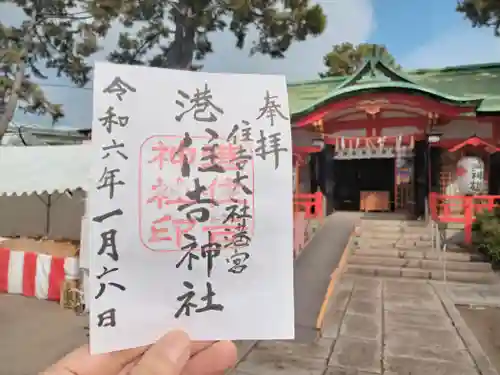 奉拝
住吉大社若宮
港住吉神社
港住吉
神社印
令和六年一月六日